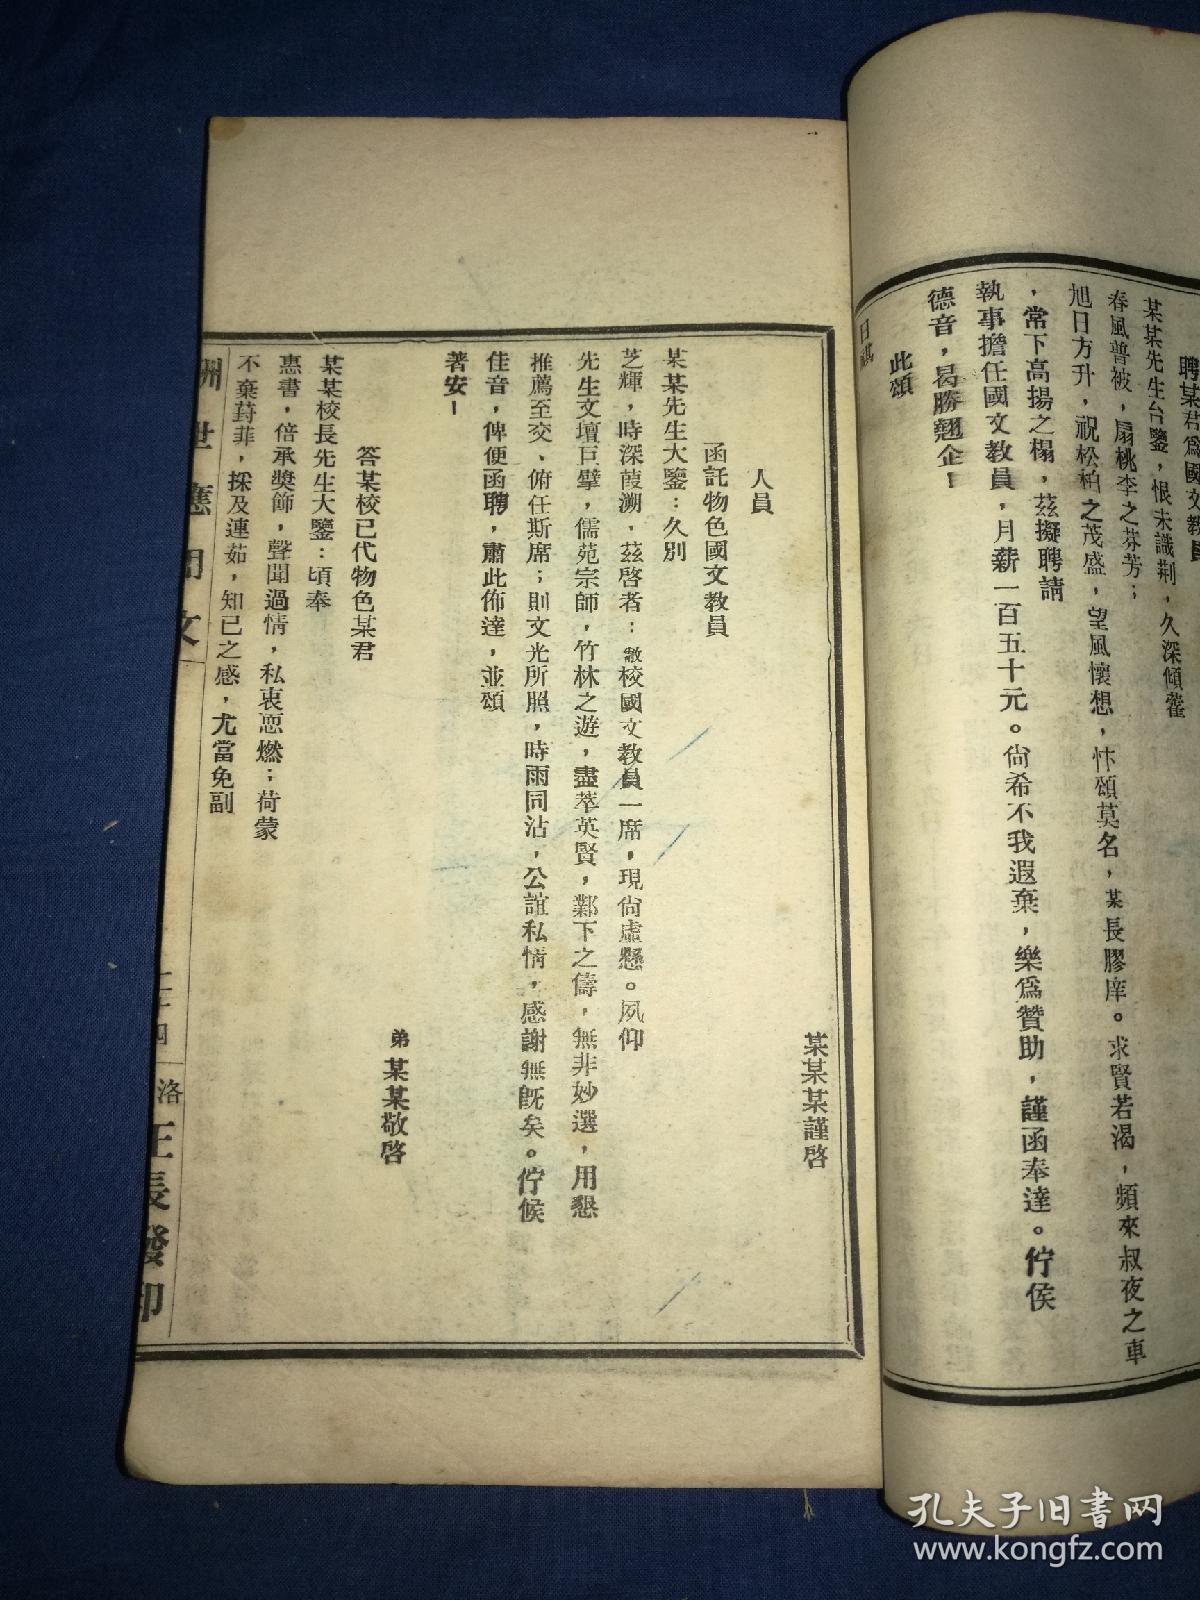 聘某君爲國文教員
某某先生台鑒，恨未識荆，久深傾藿
春風普被，扇桃李之芬芳；
旭日方升，祝松柏之茂盛，望風懷想，忭頌莫名，某長膠庠。求賢若渴，頻來叔夜之車
，常下高揚之榻，茲擬聘請
執事擔任國文教員，月薪一百五十元。尙希不我遐棄，樂爲贊助，謹函奉達。佇侯
德音，曷勝翹企！
此頌
日祺
某某某謹啓
人員
函託物色國文教員
某某先生大鑒：久別
芝輝，時深葭溯，茲啓者：敝校國文教員一席，現尙虛懸。夙仰
先生文壇巨擘，儒苑宗師，竹林之遊，盡萃英賢，鄴下之儔，無非妙選，用懇
推薦至交、俯任斯席；則文光所照，時雨同沾，公誼私情，感謝無旣矣。佇候
佳音，俾便函聘，肅此佈達，並頌
著安！
弟某某敬啓
答某校已代物色某君
某某校長先生大鑒：頃奉
惠書，倍承奬飾，聲聞過情，私衷恧燃；荷蒙
不棄葑菲，採及連茹，知己之感，尤當免副
洲世應用文
二十四
洛
王長發印
孔夫子旧书网
www.kongfz.com